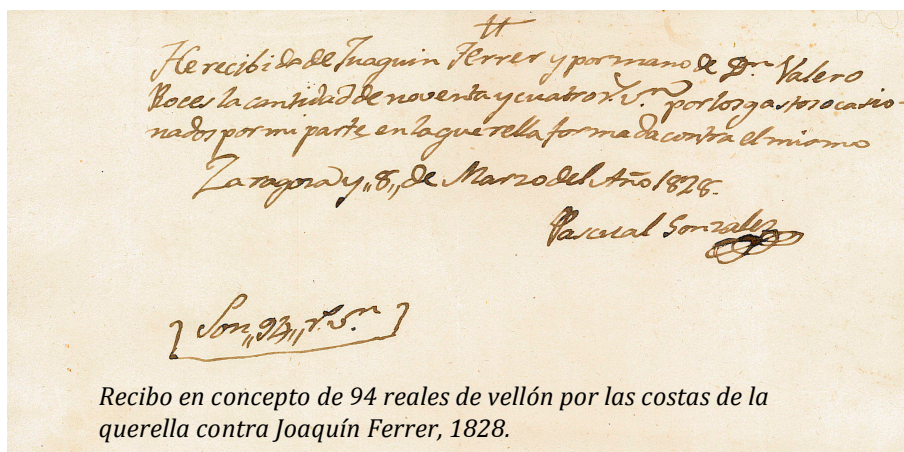 He recibido de Juaquin Ferrer y por mano de Dn. Valero
Roces la cantidad de noventa y cuatro rs. vn. por los gastos ocasio-
nados por mi parte en la querella formada contra el mismo
Zaragoza y „8„ de Marzo del Año 1828.
Pascual Gonzalez
Son „94„ rs. vn.
Recibo en concepto de 94 reales de vellón por las costas de la
querella contra Joaquín Ferrer, 1828.